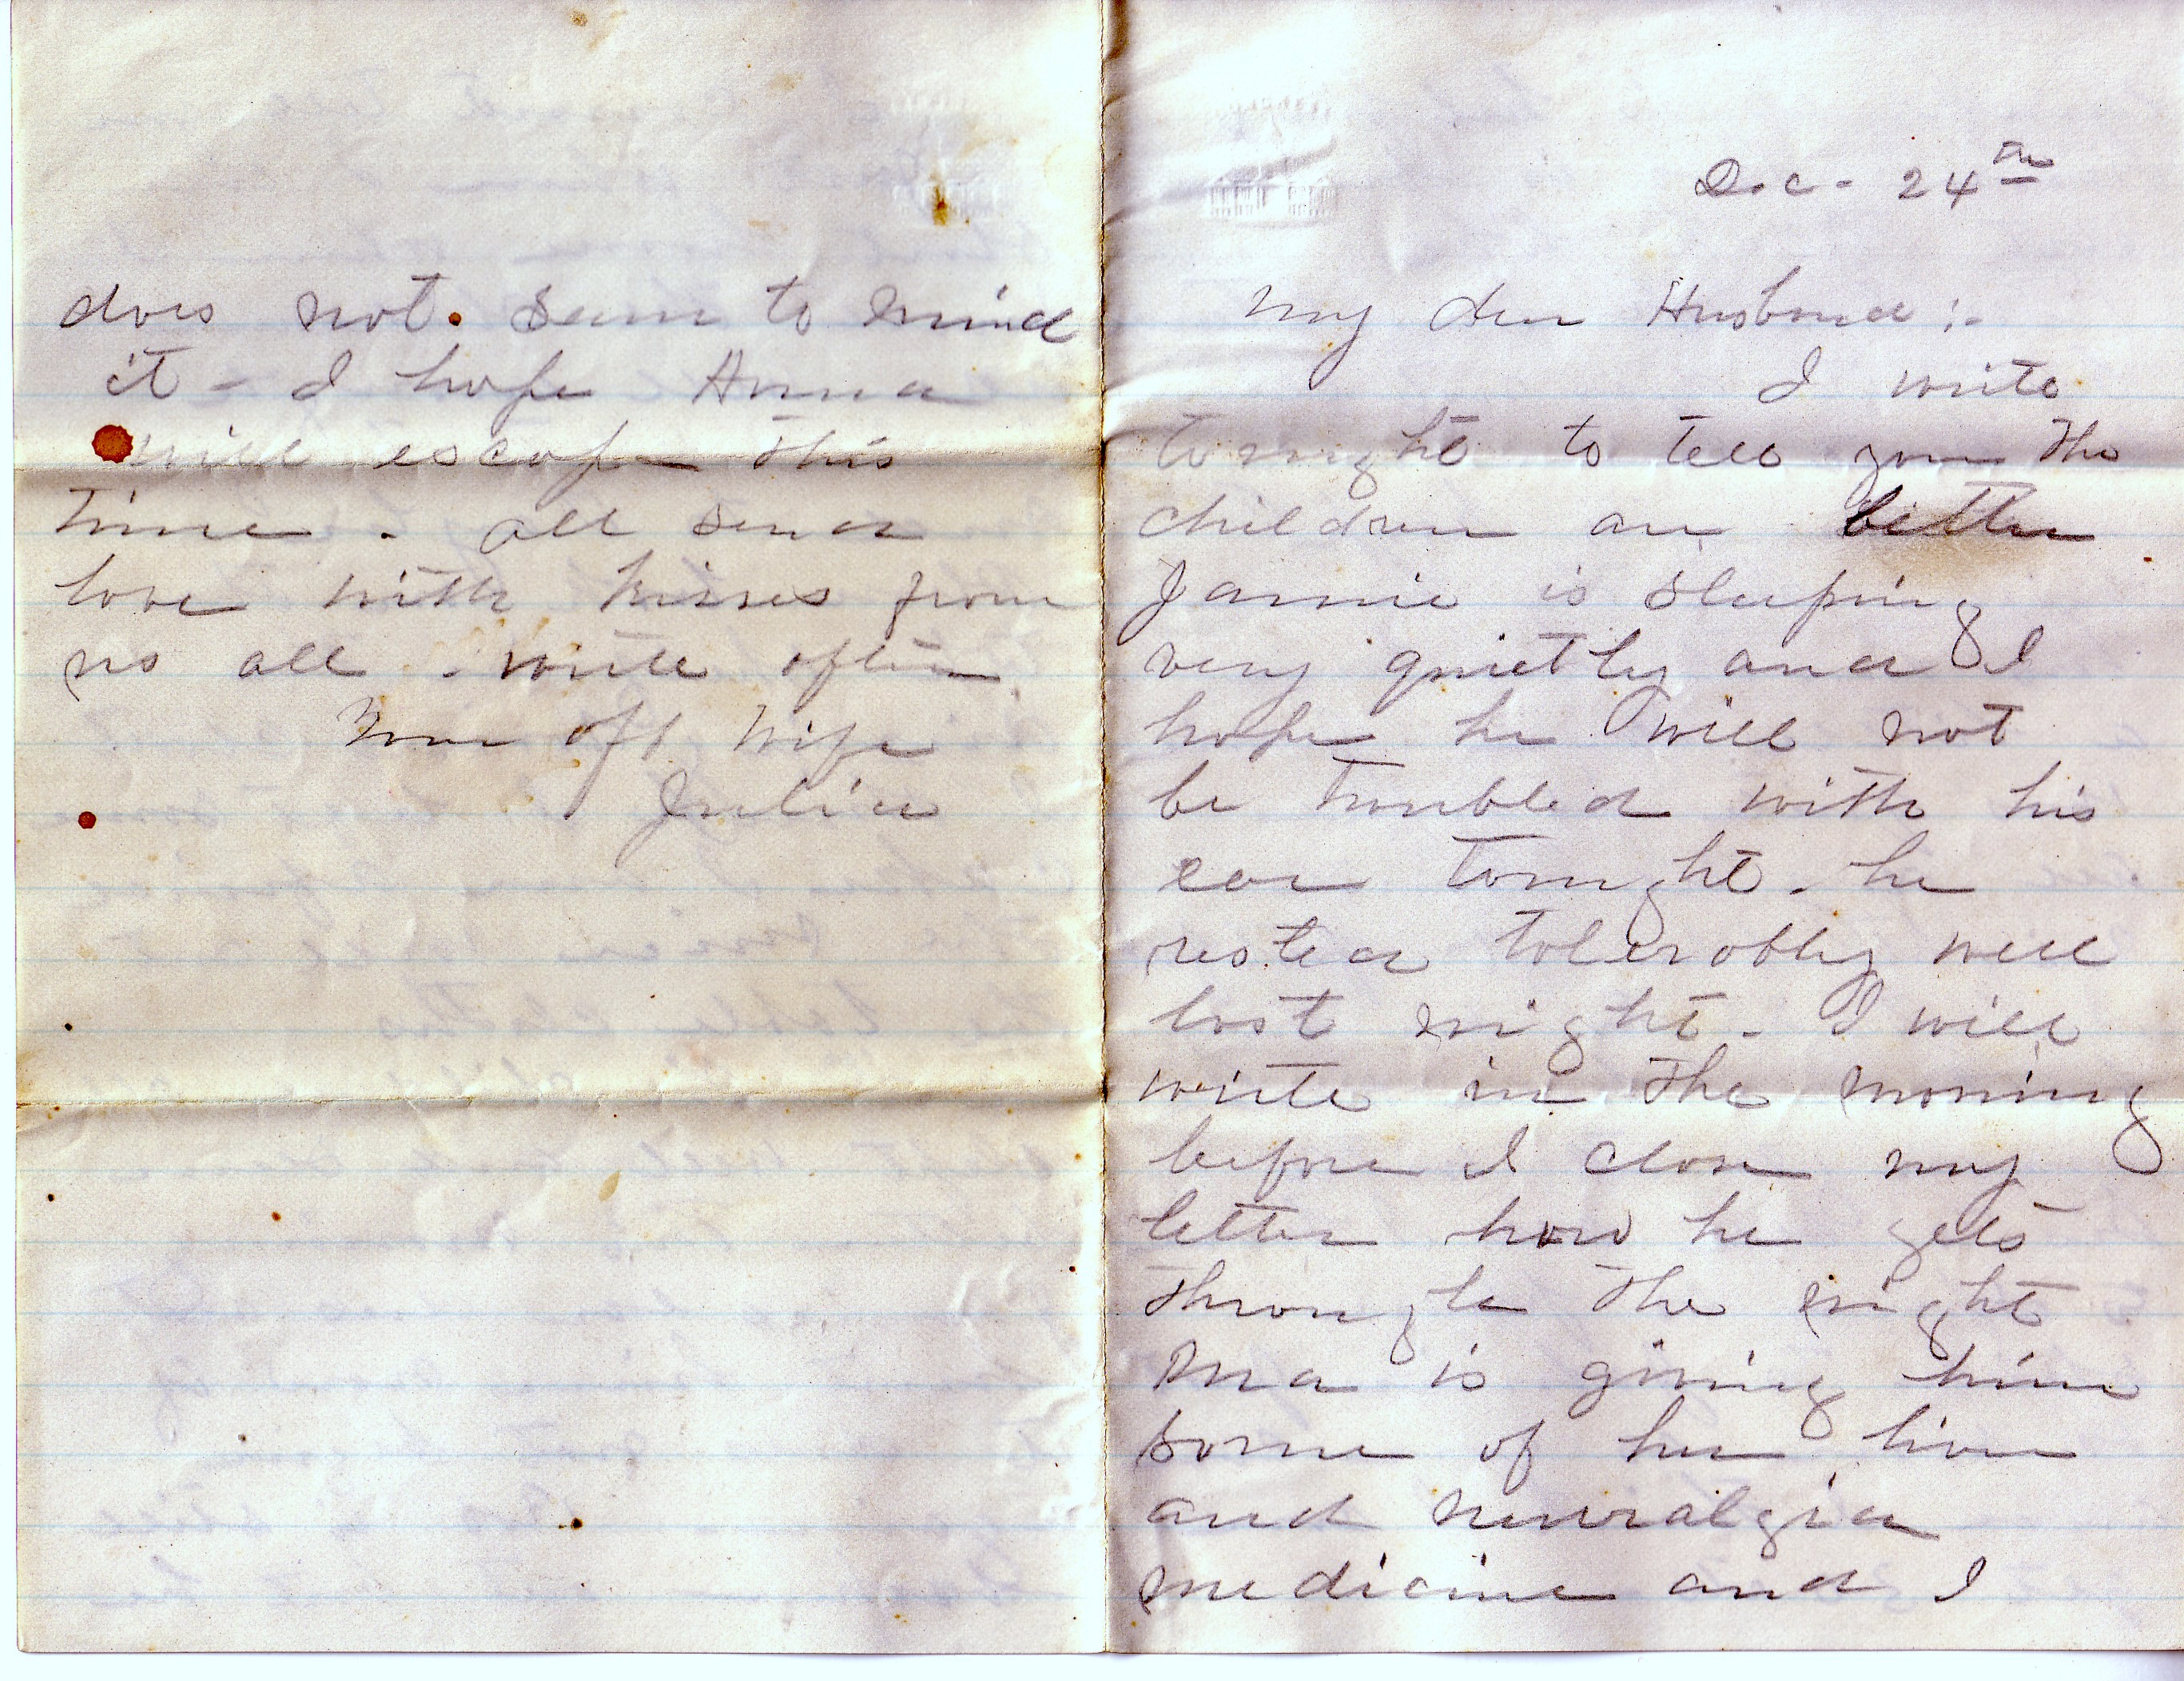 Dec - 24th
My dear Husband :-
I write
tonight to tell you the
children are better
Jamie is sleeping
very quietly and I
hope he will not
be troubled with his
ear tonight - he
rested tolerably well
last night - I will
write in the morning
before I close my
letter how he gets
through the night
Ma is giving him
some of her liver
and neuralgia
medicine and I
does not seem to mind
it - I hope Anna
will escape this
time - all send
love with kisses from
us all - write often
Your aff wife
Julia